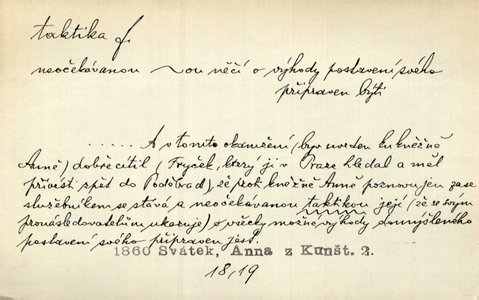 taktika f.
neočekávanou ~ou něčí o výhody postavení svého
připraven býti
...... A v tomto okamžení (byv uveden ku kněžně
Anně) dobře cítil (Fryček, který ji v Praze hledal a měl
přivést zpět do Poděbrad), že prok kněžně Anně poznovu jen zase
služebníkem se stává a neočekávanou taktikou její (že se svým
pronásledovatelům ukazuje) o všecky možné výhody domyšleného
postavení svého připraven jest.
1860 Svátek, Anna z Kunšt. 2.
18,19